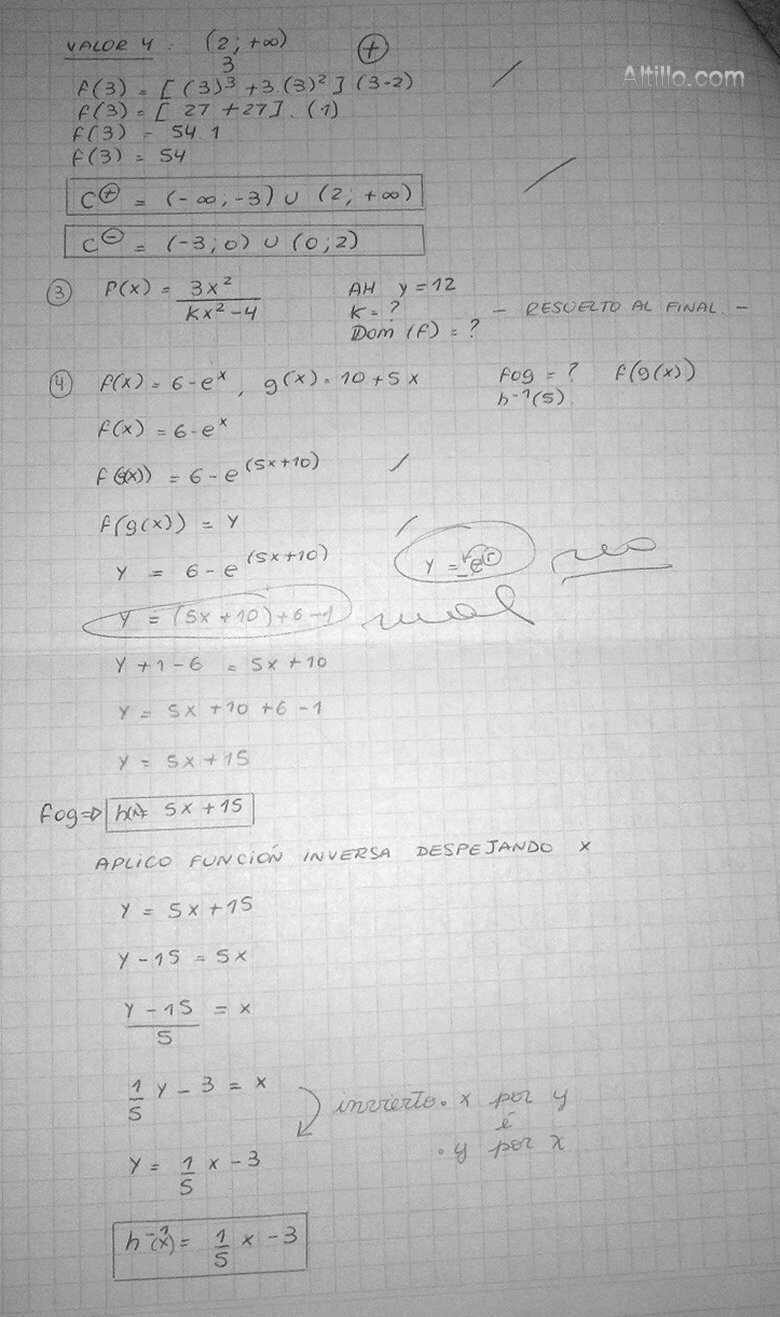 VALOR 4: (2; +∞) ⊕
3
Altillo.com
f(3) = [(3)³ + 3.(3)²] (3-2)
f(3) = [27 + 27]. (1)
f(3) = 54.1
f(3) = 54
C⊕ = (-∞; -3) ∪ (2; +∞)
C⊖ = (-3; 0) ∪ (0; 2)
③ f(x) = 3x² / kx² - 4 AH y = 12
K = ? - RESUELTO AL FINAL. -
Dom (f) = ?
④ f(x) = 6 - eˣ, g(x) = 10 + 5x fog = ? f(g(x))
h⁻¹(5)
f(x) = 6 - eˣ
f(g(x)) = 6 - e^(5x+10)
f(g(x)) = y
y = 6 - e^(5x+10)
y = (5x + 10) + 6 - 1 mal
y + 1 - 6 = 5x + 10
y = 5x + 10 + 6 - 1
y = 5x + 15
fog ⇒ h(x) = 5x + 15
APLICO FUNCIÓN INVERSA DESPEJANDO x
y = 5x + 15
y - 15 = 5x
y - 15 / 5 = x
1/5 y - 3 = x
invierto . x por y
é
. y por x
y = 1/5 x - 3
h⁻¹(x) = 1/5 x - 3